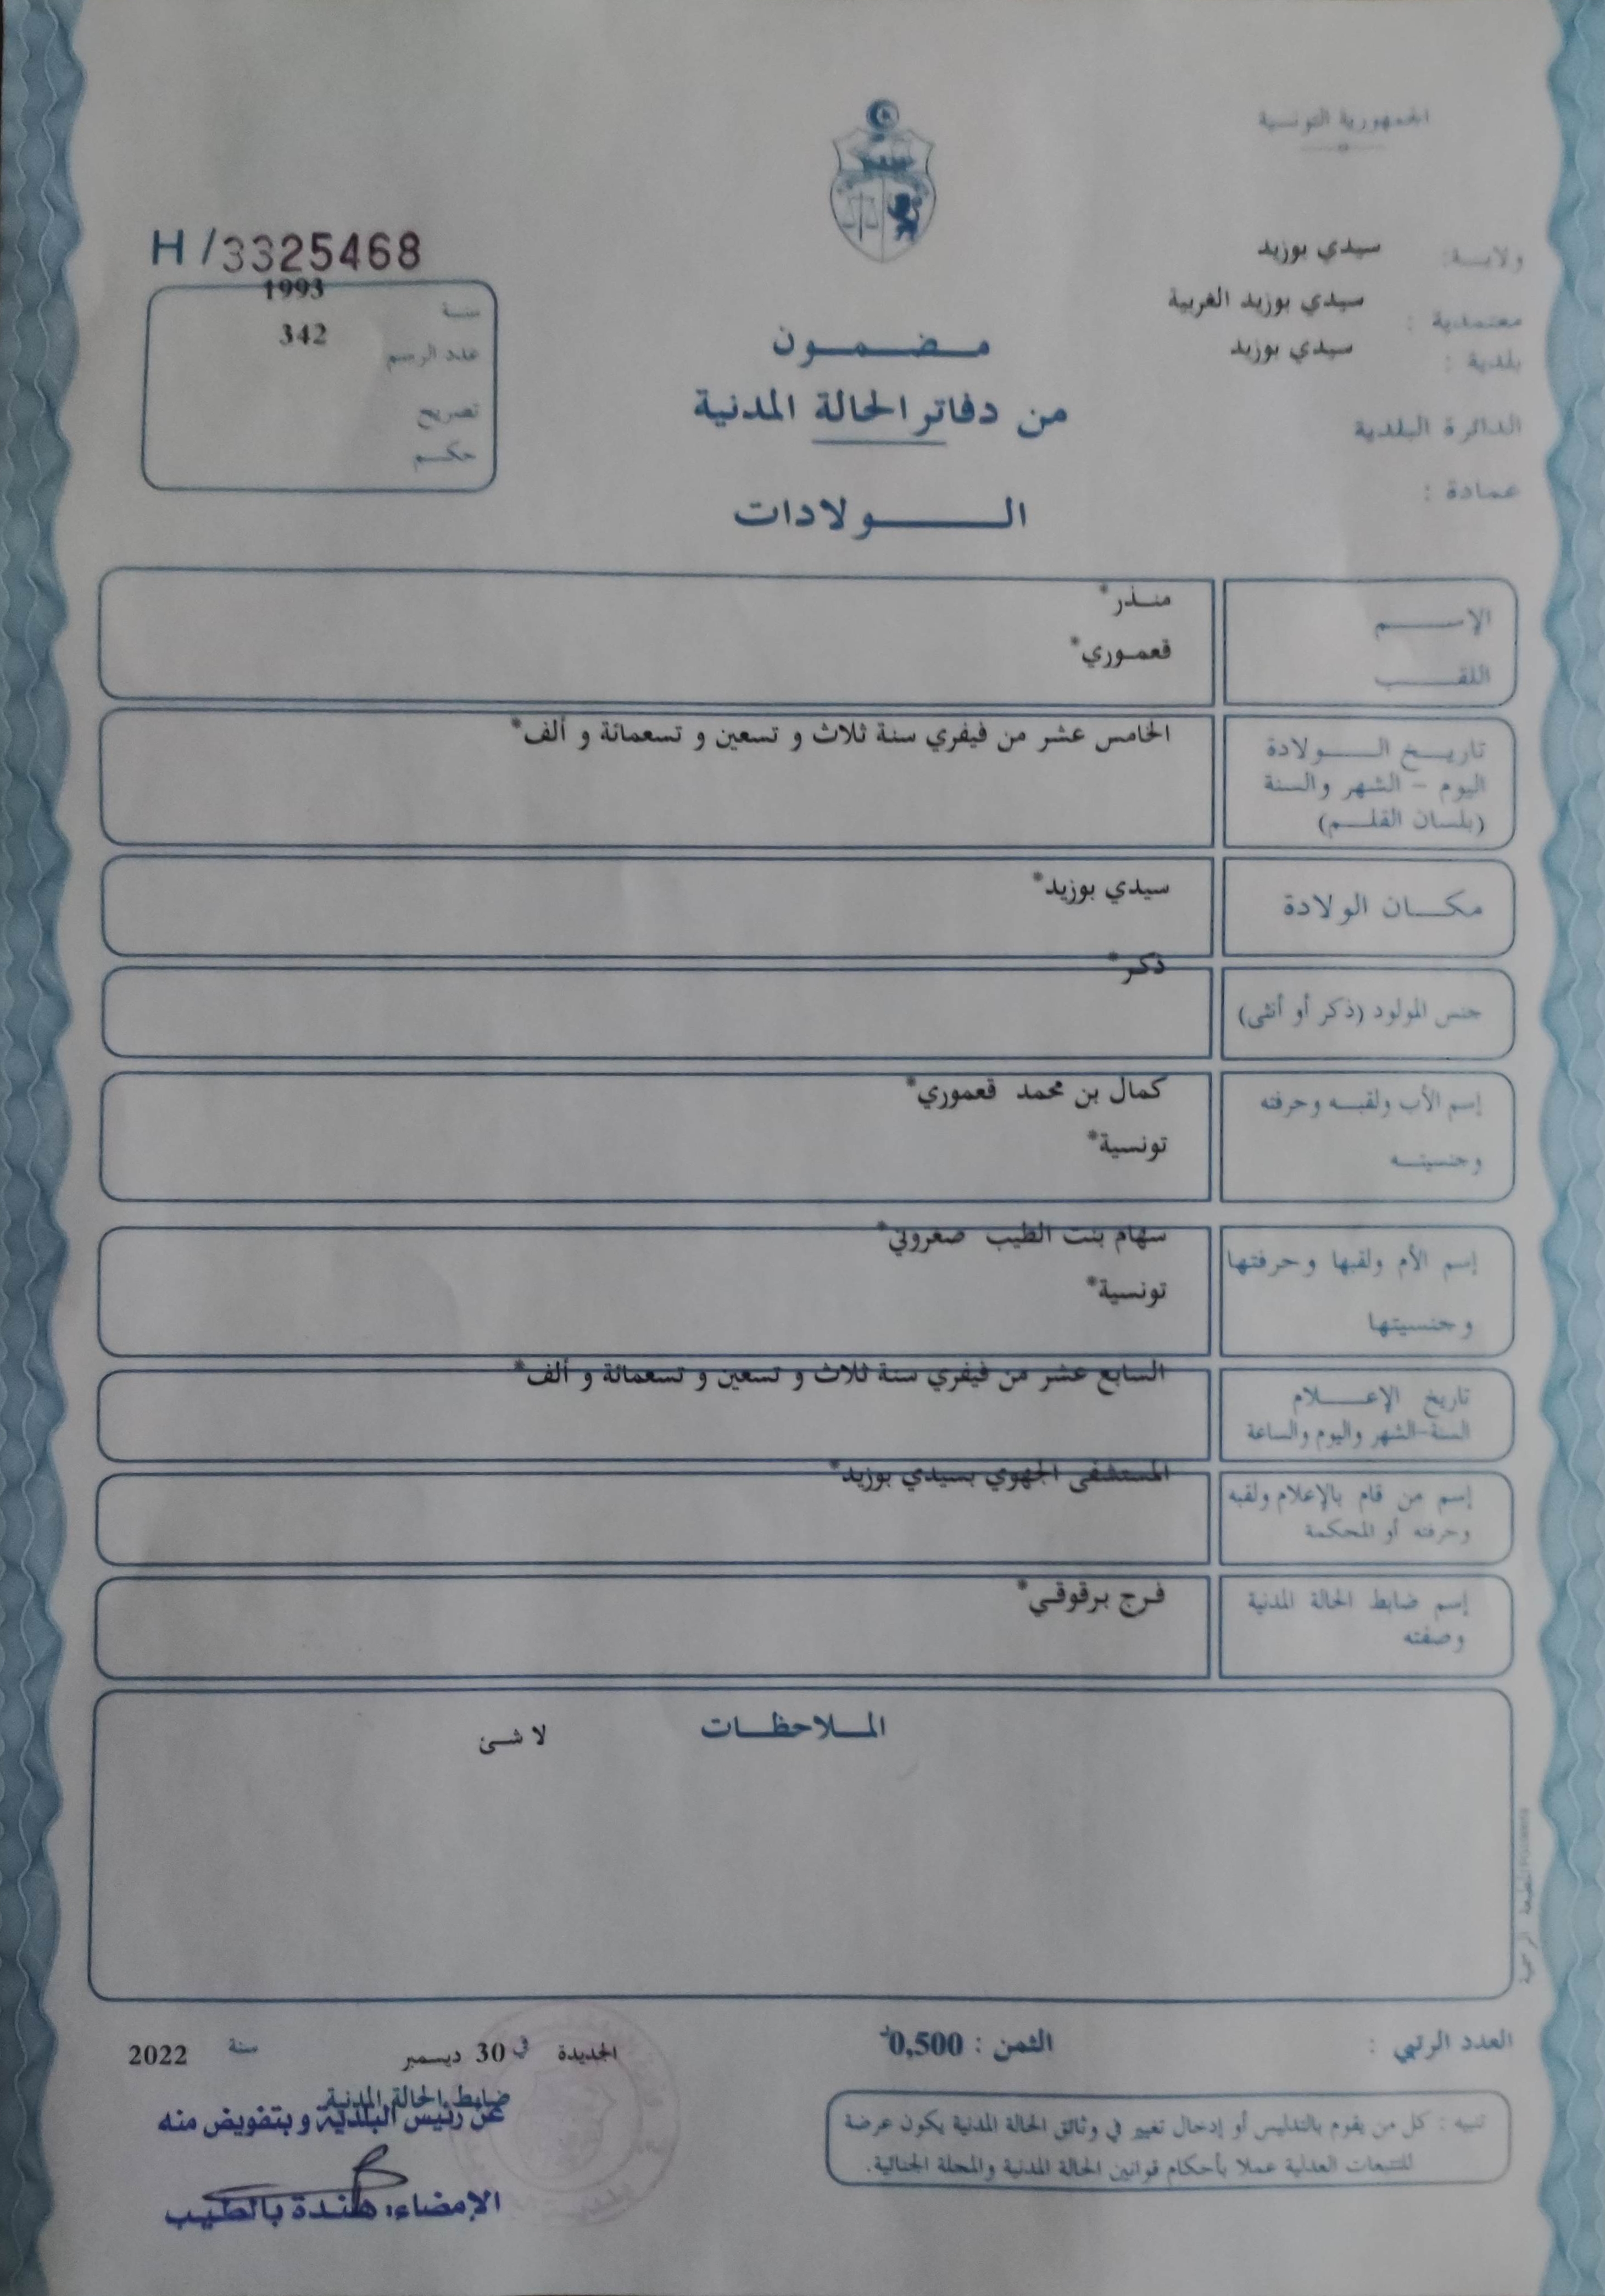 الجمهورية التونسية
H/3325468
ولاية: سيدي بوزيد
معتمدية : سيدي بوزيد الغربية
بلدية : سيدي بوزيد
الدائرة البلدية
عمادة :
سنة 1993
عدد الرسم 342
تصريح
حكم
مضمون
من دفاتر الحالة المدنية
الولادات
الإسم منذر*
اللقب قعموري*
تاريخ الولادة الخامس عشر من فيفري سنة ثلاث و تسعين و تسعمائة و ألف*
اليوم - الشهر والسنة
(بلسان القلم)
مكان الولادة سيدي بوزيد*
جنس المولود (ذكر أو أنثى) ذكر*
إسم الأب ولقبه وحرفته كمال بن محمد قعموري*
وجنسيته تونسية*
إسم الأم ولقبها وحرفتها سهام بنت الطيب صغروني*
وجنسيتها تونسية*
تاريخ الإعلام السابع عشر من فيفري سنة ثلاث و تسعين و تسعمائة و ألف*
السنة-الشهر واليوم والساعة
إسم من قام بالإعلام ولقبه المستشفى الجهوي بسيدي بوزيد*
وحرفته أو المحكمة
إسم ضابط الحالة المدنية فرج برقوقي*
وصفته
الملاحظات لا شئ
المطبعة الرسمية
العدد الرتبي :
الثمن : 0,500د
الجديدة في 30 ديسمبر سنة 2022
ضابط الحالة المدنية
عن رئيس البلدية وبتفويض منه
الإمضاء: هندة بالطيب
تنبيه : كل من يقوم بالتدليس أو إدخال تغيير في وثائق الحالة المدنية يكون عرضة
للتتبعات العدلية عملا بأحكام قوانين الحالة المدنية والمجلة الجنائية.